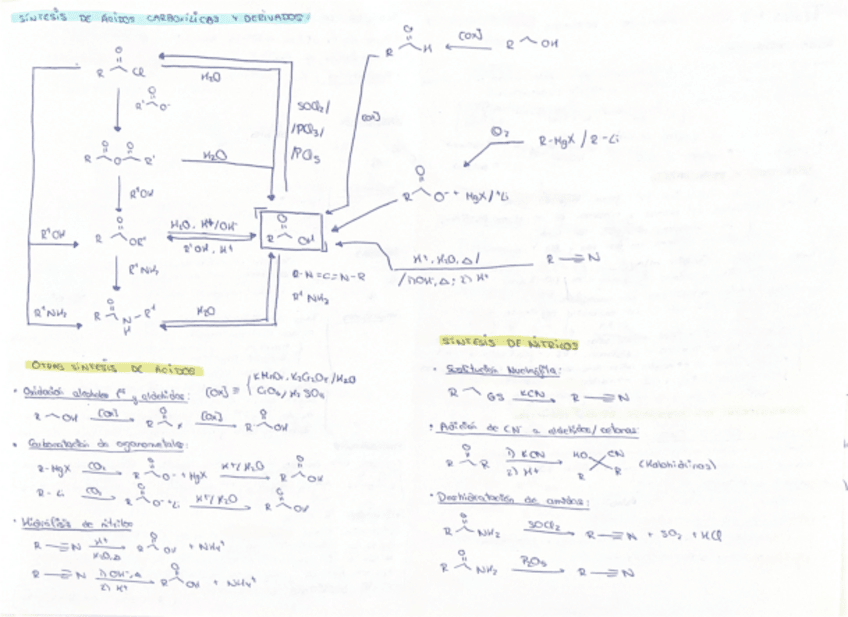 SÍNTESIS DE ÁCIDOS CARBOXÍLICOS Y DERIVADOS
R Cl
H₂O
R' O⁻
SOCl₂/
/PCl₃/
/PCl₅
R O R'
H₂O
R'OH
R OR'
H₂O, H⁺/OH⁻
R'OH, H⁺
R OH
R'OH
R'NH₂
R'NH₂
R N R'
H
H₂O
R-N=C=N-R
R'NH₂
R H
[OX]
R OH
[OX]
CO₂
R-MgX / R-Li
R O⁻ ⁺MgX/⁺Li
H⁺, H₂O, Δ/
/1)OH⁻, Δ; 2) H⁺
R ≡N
OTRAS SÍNTESIS DE ÁCIDOS
· Oxidación alcoholes 1º y aldehídos: [OX] ≡ { KMnO₄, K₂Cr₂O₇/H₂O
CrO₃/H₂SO₄
R OH [OX] R H [OX] R OH
· Carbonatación de organometales:
R-MgX CO₂ R O⁻ ⁺MgX H⁺/H₂O R OH
R-Li CO₂ R O⁻ ⁺Li H⁺/H₂O R OH
· Hidrólisis de nitrilos
R ≡N H⁺ H₂O,Δ R OH + NH₄⁺
R ≡N 1) OH⁻, Δ 2) H⁺ R OH + NH₄⁺
SÍNTESIS DE NITRILOS
· Sustitución Nucleófila:
R GS KCN R ≡N
· Adición de CN⁻ a aldehídos/cetonas
R R 1) KCN 2) H⁺ HO CN R R
· Deshidratación de amidas:
R NH₂ SOCl₂ R ≡N + SO₂ + HCl
R NH₂ P₂O₅ R ≡N